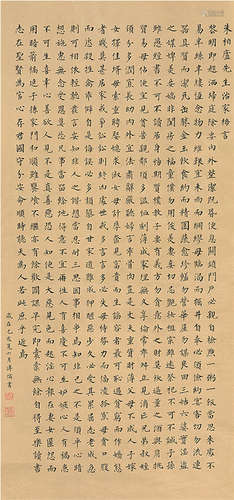 朱柏廬先生治家格言
黎明即起洒掃庭除要內外整潔既昏便息關鎖門戶必親自檢點一粥一飯當思來處不
易半絲半縷恆念物力維艱宜未雨而綢繆勿臨渴而掘井自奉必須儉約宴客切勿流連
器具質而潔瓦缶勝金玉飲食約而精園蔬愈珍饈勿營華屋勿謀良田三姑六婆實淫盜
之媒婢美妾嬌非閨房之福童僕勿用俊美妻妾切忌艷妝祖宗雖遠祭祀不可不誠子孫
雖愚經書不可不讀居身務期質樸教子要有義方勿貪意外之財勿飲過量之酒與肩挑
貿易毋佔便宜見貧苦親鄰須多溫恤刻薄成家理無久享倫常乖舛立見消亡兄弟叔姪
須分多潤寡長幼內外宜法肅辭嚴聽婦言乖骨肉豈是丈夫重資財薄父母不成人子嫁
女擇佳婿毋索重聘娶媳求淑女毋計厚奩見富貴而生諂容者最可恥遇貧窮而作驕態
者賤莫甚居家戒爭訟訟則終凶處世戒多言言多必失毋恃勢力而凌逼孤寡毋貪口腹
而恣殺牲禽乖僻自是悔誤必多頹惰自甘家道難成狎暱惡少久必受其累屈志老成急
則可相依輕聽發言安知非人之譖訴當忍耐三思因事相爭安知非我之不是須平心暗
想施惠無念受恩莫忘凡事當留餘地得意不宜再往人有喜慶不可生妒忌心人有禍患
不可生喜幸心善欲人見不是真善惡恐人知便是大惡見色而起淫心報在妻女匿怨而
用暗箭禍延子孫家門和順雖饔飧不繼亦有餘歡國課早完即囊橐無餘自得至樂讀書
志在聖賢為官心存君國守分安命順時聽天為人若此庶乎近焉
歲在乙亥夏六月溥儒書